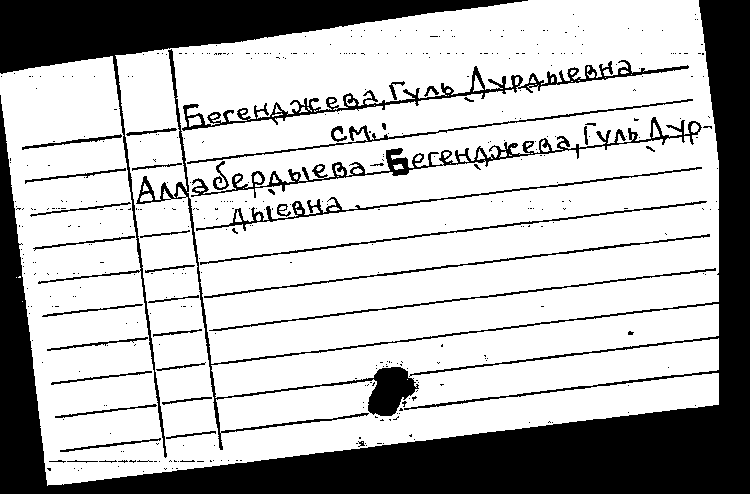 Бегенджева, Гуль Дурдыевна.
см.:
Аллабердыева-Бегенджева, Гуль Дур-
дыевна.